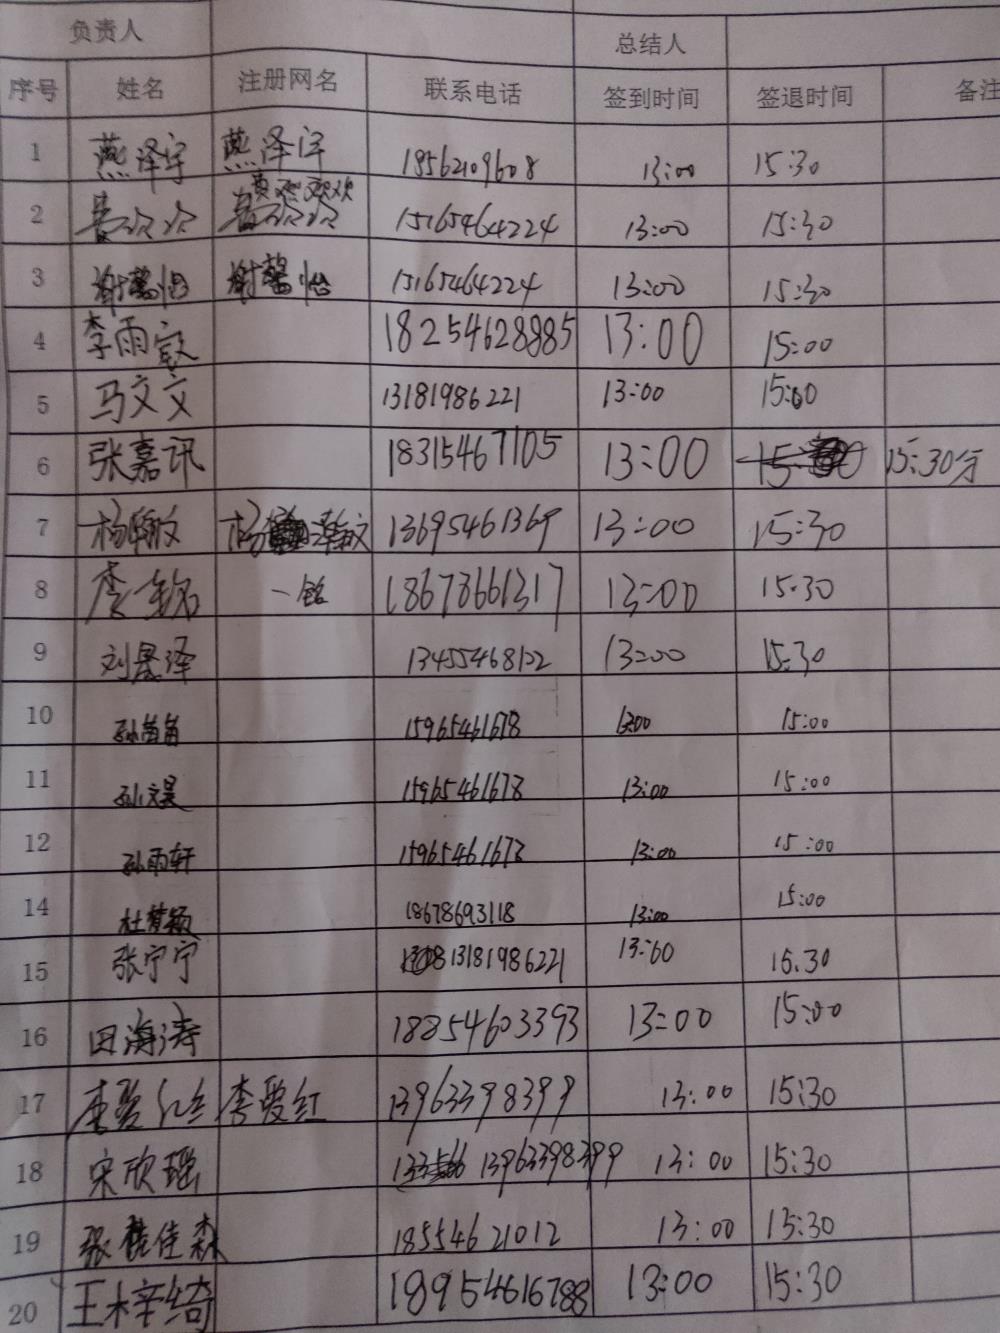 负责人 总结人
序号 姓名 注册网名 联系电话 签到时间 签退时间 备注
1 燕泽宇 燕泽宇 18562109608 13:00 15:30
2 袁欢欢 15165464224 13:00 15:30
3 谢馨怡 谢馨怡 15165464224 13:00 15:30
4 李雨 18254628885 13:00 15:00
5 马文文 13181986221 13:00 15:00
6 张嘉讯 18315467105 13:00 15:30分
7 杨瀚文 杨瀚文 13695461369 13:00 15:30
8 李一铭 一铭 18678661317 13:00 15:30
9 刘晟泽 13455468122 13:00 15:30
10 孙苗苗 15965461678 13:00 15:00
11 孙文昊 15965461678 13:00 15:00
12 孙雨轩 15965461678 13:00 15:00
14 杜梦颖 18678693118 13:00 15:00
15 张宁宁 13181986221 13:00 15.30
16 田海涛 18854603393 13:00 15:00
17 李爱红 李爱红 13963398399 13:00 15:30
18 宋欣瑶 13963398399 13:00 15:30
19 张佳森 18554621012 13:00 15:30
20 王梓绮 18954616788 13:00 15:30